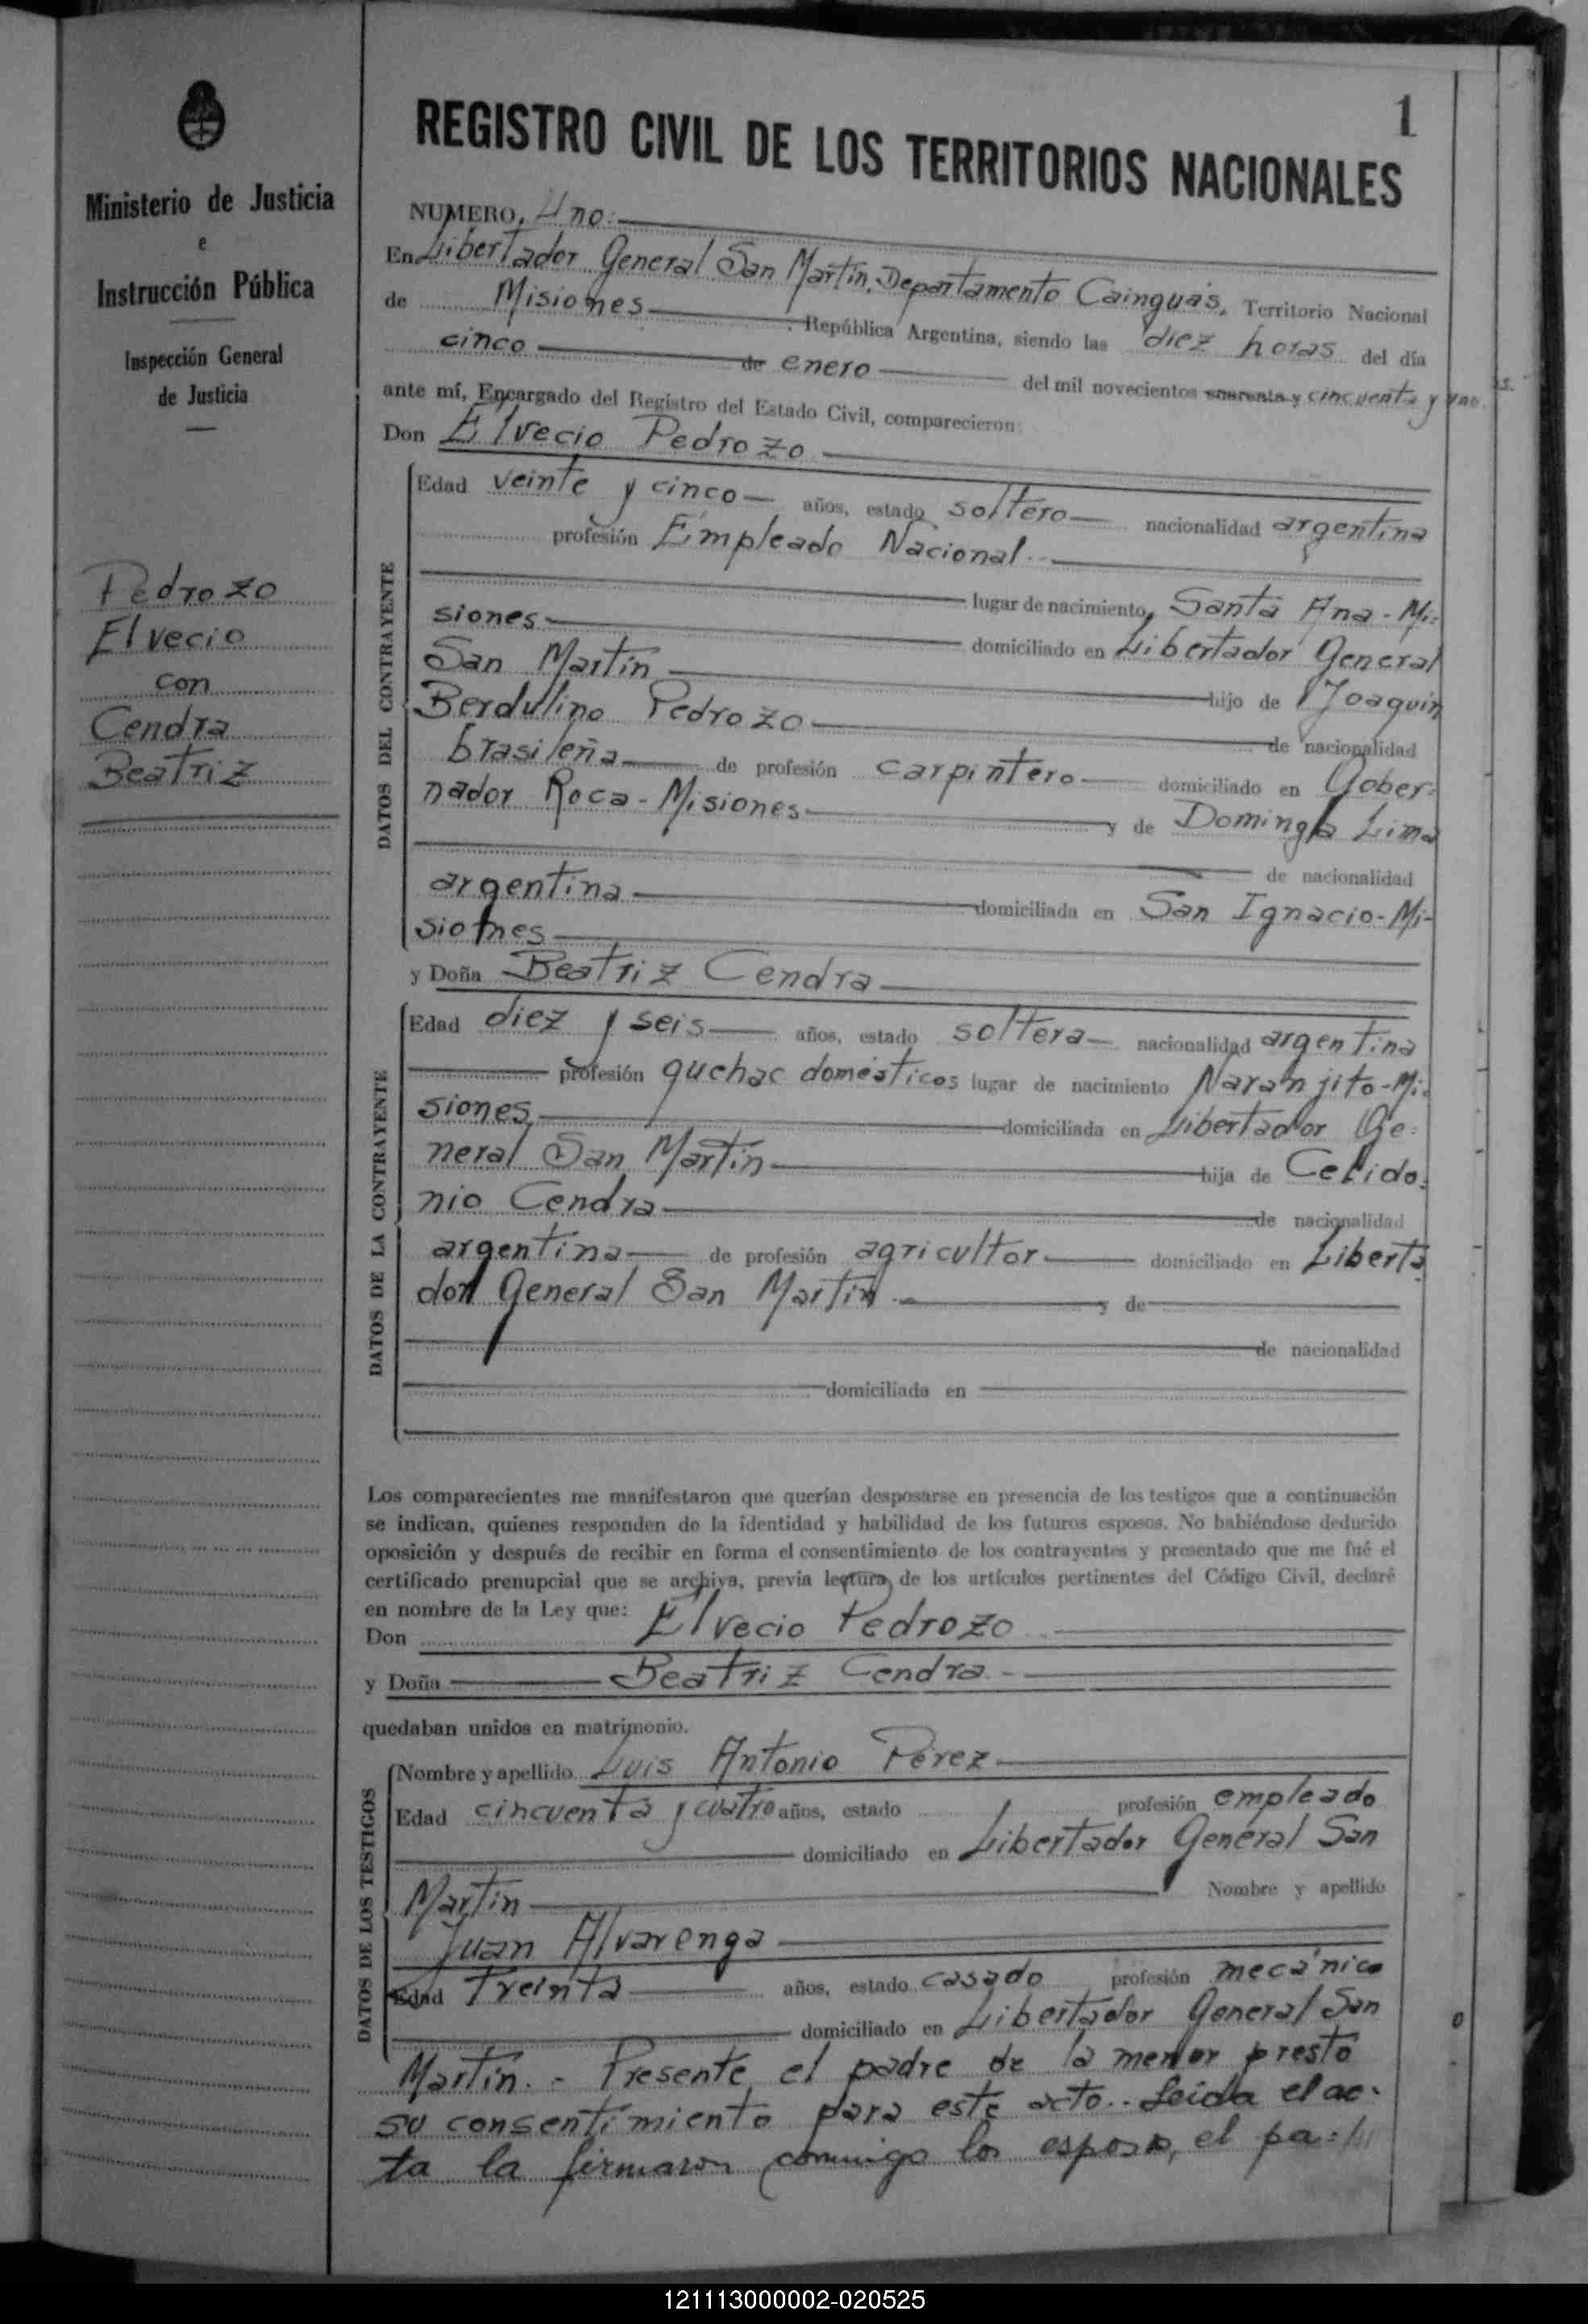 Ministerio de Justicia
e
Instrucción Pública
Inspección General
de Justicia
Pedrozo
Elvecio
con
Cendra
Beatriz
1
REGISTRO CIVIL DE LOS TERRITORIOS NACIONALES
NUMERO, Uno.
En Libertador General San Martín, Departamento Cainguás, Territorio Nacional
de Misiones República Argentina, siendo las diez horas del día
cinco de enero del mil novecientos cuarenta y cincuenta y uno.
ante mí, Encargado del Registro del Estado Civil, comparecieron:
Don Elvecio Pedrozo
DATOS DEL CONTRAYENTE
Edad veinte y cinco años, estado soltero nacionalidad argentina
profesión Empleado Nacional
lugar de nacimiento, Santa Ana - Mi=
siones domiciliado en Libertador General
San Martín hijo de Joaquín
Berdulino Pedrozo de nacionalidad
brasileña de profesión carpintero domiciliado en Gober=
nador Roca - Misiones y de Dominga Lima
de nacionalidad
argentina domiciliada en San Ignacio - Mi-
siones
y Doña Beatriz Cendra
DATOS DE LA CONTRAYENTE
Edad diez y seis años, estado soltera nacionalidad argentina
profesión quehac. domésticos lugar de nacimiento Naranjito - Mi=
siones domiciliada en Libertador Ge=
neral San Martín hija de Celido=
nio Cendra de nacionalidad
argentina de profesión agricultor domiciliado en Liberta
dor General San Martín y de
de nacionalidad
domiciliada en
Los comparecientes me manifestaron que querían desposarse en presencia de los testigos que a continuación
se indican, quienes responden de la identidad y habilidad de los futuros esposos. No habiéndose deducido
oposición y después de recibir en forma el consentimiento de los contrayentes y presentado que me fué el
certificado prenupcial que se archiva, previa lectura, de los artículos pertinentes del Código Civil, declaré
en nombre de la Ley que:
Don Elvecio Pedrozo
y Doña Beatriz Cendra
quedaban unidos en matrimonio.
DATOS DE LOS TESTIGOS
Nombre y apellido Luis Antonio Pérez
Edad cincuenta y cuatro años, estado profesión empleado
domiciliado en Libertador General San
Martín Nombre y apellido
Juan Alvarenga
Edad treinta años, estado casado profesión mecánico
domiciliado en Libertador General San
Martín. - Presente el padre de la menor presto
su consentimiento para este acto.. Leida el ac-
ta la firmaron conmigo los esposos, el pa=
121113000002-020525